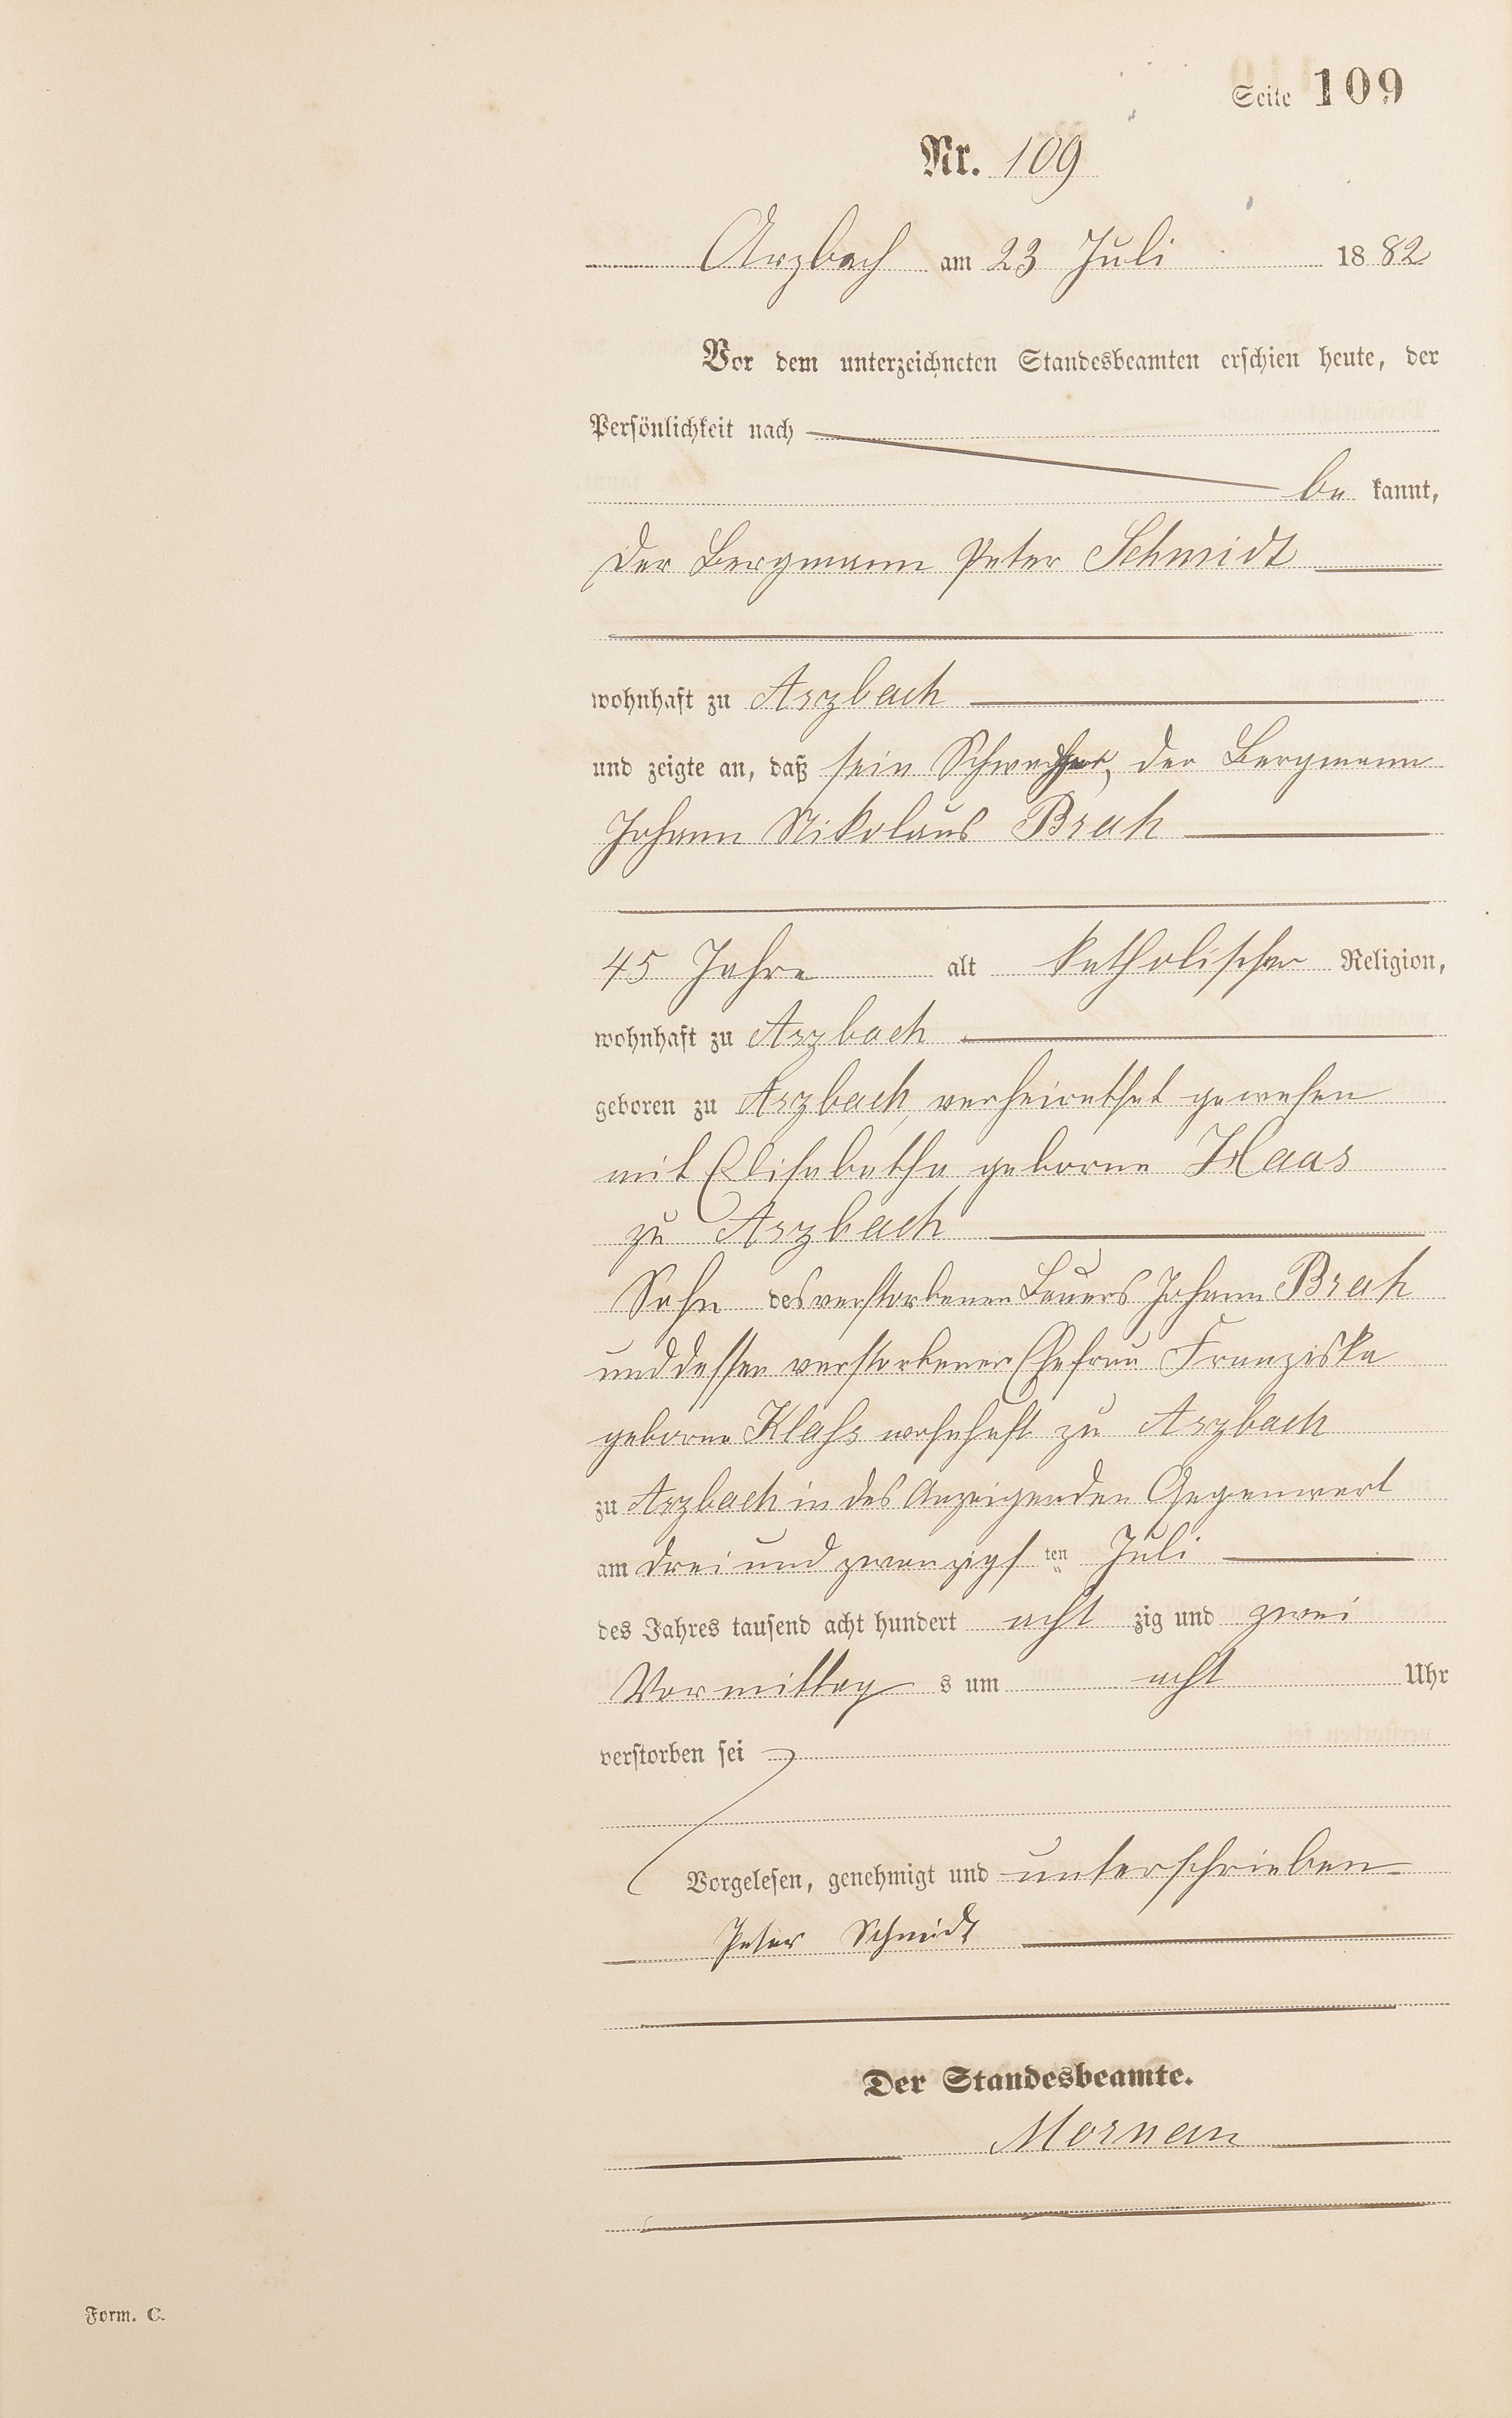 Seite 109
Nr. 109
Arzbach am 23 Juli 1882
Vor dem unterzeichneten Standesbeamten erschien heute, der
Persönlichkeit nach
be kannt,
der Bergmann Peter Schmidt
wohnhaft zu Arzbach
und zeigte an, daß sein der Bergmann
Johann Nikolaus Brah
45 Jahre alt katholischer Religion,
wohnhaft zu Arzbach
geboren zu Arzbach, verheirathet gewesen
mit Elisabetha, geborne Haas
zu Arzbach
Sohn des verstorbenen Bauers Johann Brah
und dessen verstorbener Ehefrau Franziska
geborne Klahs wohnhaft zu Arzbach
zu Arzbach in des Anzeigenden Gegenwart
am drei und zwanzigsten Juli
des Jahres tausend acht hundert acht zig und zwei
Vormittag s um acht Uhr
verstorben sei
Vorgelesen, genehmigt und unterschrieben
Peter Schmidt
Der Standesbeamte.
Form. C.